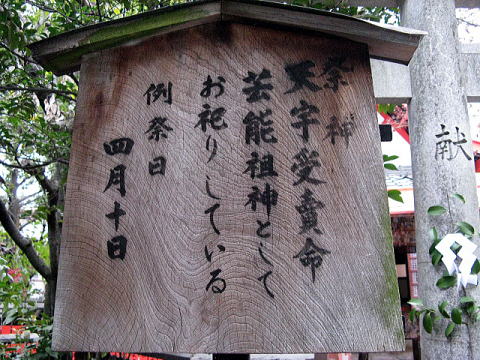 祭神
天宇受賣命
芸能祖神として
お祀りしている
例祭日
四月十日
献